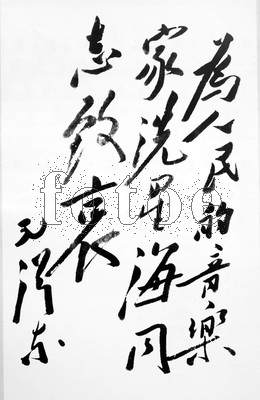 為人民的音樂
家洗星海同
志致哀
毛澤东
fotoe